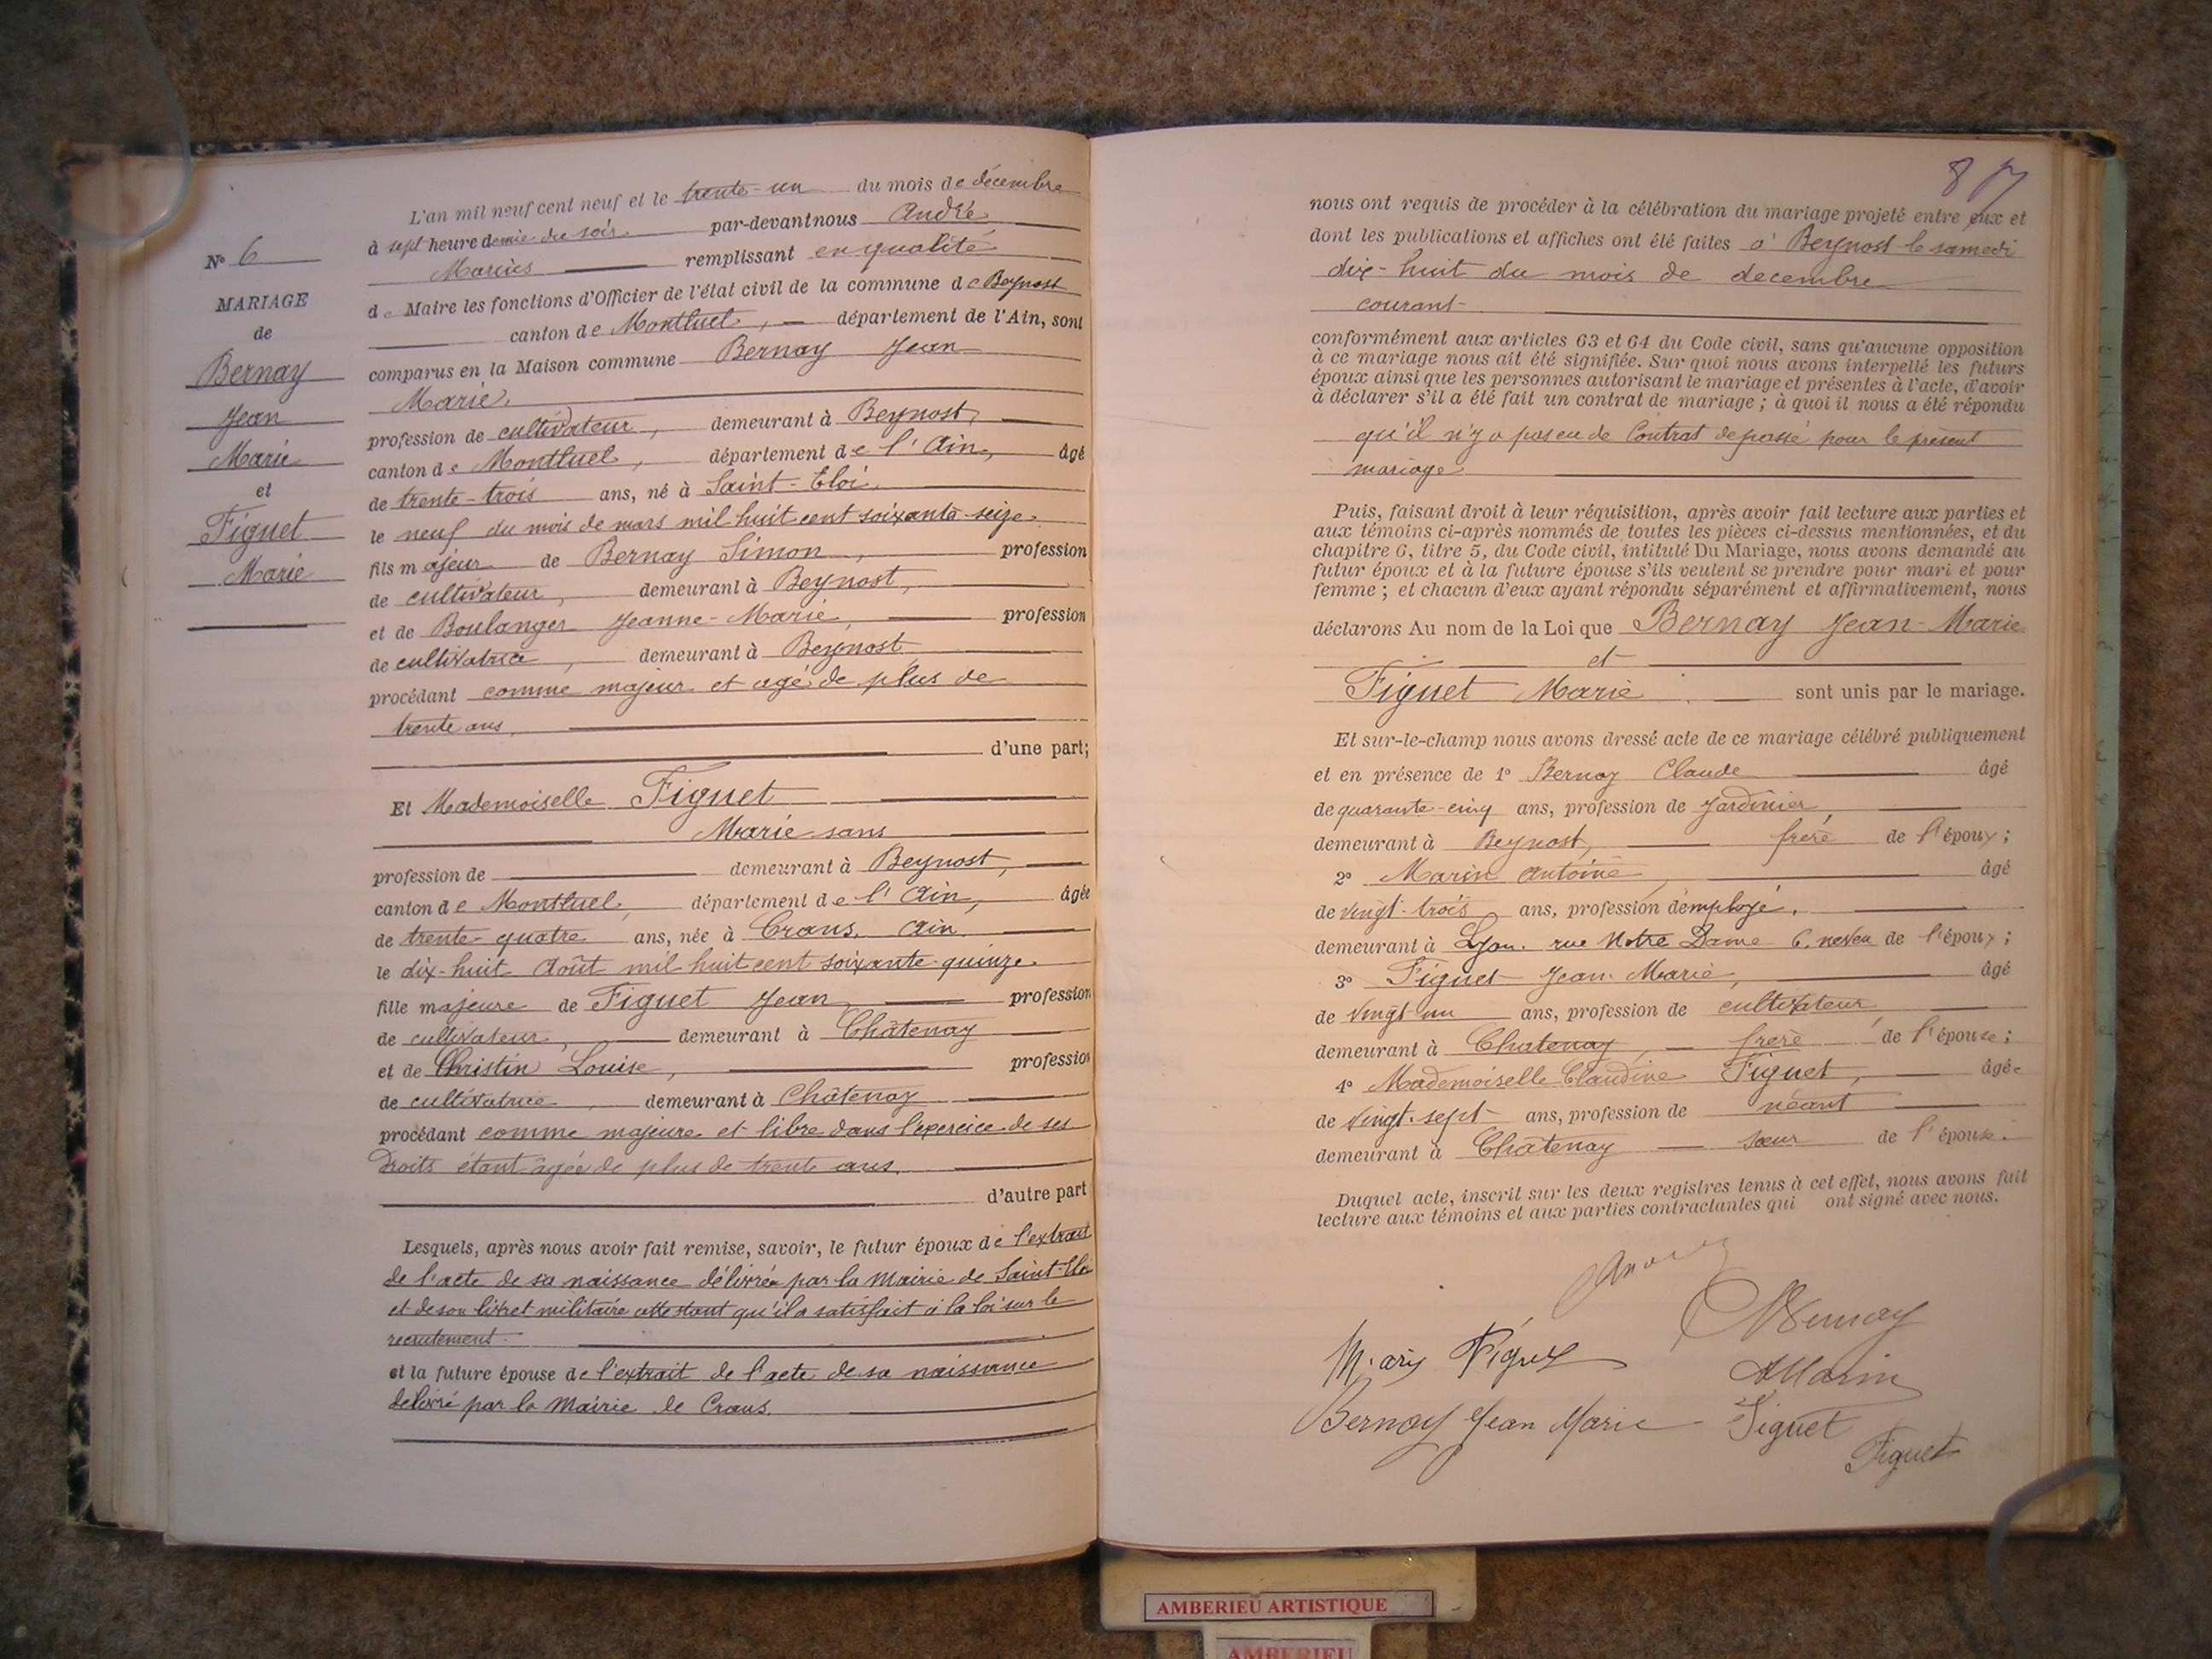 N° 6
MARIAGE
de
Bernay
Jean
Marie
et
Figuet
Marie
L'an mil neuf cent neuf et le trente-un du mois de décembre
à sept heure demie du soir par-devant nous André
Marius remplissant en qualité
de Maire les fonctions d'Officier de l'état civil de la commune de Beynost
canton de Montluel, département de l'Ain, sont
comparus en la Maison commune Bernay Jean
Marie,
profession de cultivateur, demeurant à Beynost,
canton de Montluel, département de l'Ain, âgé
de trente-trois ans, né à Saint-Eloi
le neuf du mois de mars mil huit cent soixante-seize
fils majeur de Bernay Simon, profession
de cultivateur, demeurant à Beynost,
et de Boulanger Jeanne-Marie, profession
de cultivatrice, demeurant à Beynost
procédant comme majeur et agé de plus de
trente ans,
d'une part;
Et Mademoiselle Figuet
Marie sans
profession de demeurant à Beynost,
canton de Montluel, département de l'Ain, âgée
de trente-quatre ans, née à Crans, Ain
le dix-huit Août mil huit cent soixante-quinze
fille majeure de Figuet Jean, profession
de cultivateur, demeurant à Châtenay
et de Christin Louise, profession
de cultivatrice, demeurant à Châtenay
procédant comme majeure et libre dans l'exercice de ses
Droits étant âgée de plus de trente ans.
d'autre part
Lesquels, après nous avoir fait remise, savoir, le futur époux de l'extrait
de l'acte de sa naissance délivrée par la Mairie de Saint-Eloi
et de son livret militaire attestant qu'il a satisfait à la loi sur le
recrutement
et la future épouse de l'extrait de l'acte de sa naissance
délivré par la Mairie de Crans.
87
nous ont requis de procéder à la célébration du mariage projeté entre eux et
dont les publications et affiches ont été faites à Beynost le samedi
dix-huit du mois de decembre
courant
conformément aux articles 63 et 64 du Code civil, sans qu'aucune opposition
à ce mariage nous ait été signifiée. Sur quoi nous avons interpellé les futurs
époux ainsi que les personnes autorisant le mariage et présentes à l'acte, d'avoir
à déclarer s'il a été fait un contrat de mariage; à quoi il nous a été répondu
qu'il n'y a pas eu de Contrat de passé pour le présent
mariage
Puis, faisant droit à leur réquisition, après avoir fait lecture aux parties et
aux témoins ci-après nommés de toutes les pièces ci-dessus mentionnées, et du
chapitre 6, titre 5, du Code civil, intitulé Du Mariage, nous avons demandé au
futur époux et à la future épouse s'ils veulent se prendre pour mari et pour
femme; et chacun d'eux ayant répondu séparément et affirmativement, nous
déclarons Au nom de la Loi que Bernay Jean-Marie
et
Figuet Marie sont unis par le mariage.
Et sur-le-champ nous avons dressé acte de ce mariage célébré publiquement
et en présence de 1° Bernay Claude âgé
de quarante-cinq ans, profession de Jardinier,
demeurant à Beynost, frère de l'époux;
2° Marin Antoine, âgé
de vingt-trois ans, profession d'employé.
demeurant à Lyon. rue Notre Dame 6. neveu de l'époux;
3° Figuet Jean-Marie, âgé
de vingt-un ans, profession de cultivateur
demeurant à Chatenay, frère de l'épouse;
4° Mademoiselle Claudine Figuet, âgée
de vingt-sept ans, profession de néant
demeurant à Châtenay soeur de l'épouse.
Duquel acte, inscrit sur les deux registres tenus à cet effet, nous avons fait
lecture aux témoins et aux parties contractantes qui ont signé avec nous.
Bernay
Marie Figuet
AMarin
Bernay Jean Marie
Figuet
Figuet
AMBERIEU ARTISTIQUE
AMBERIEU